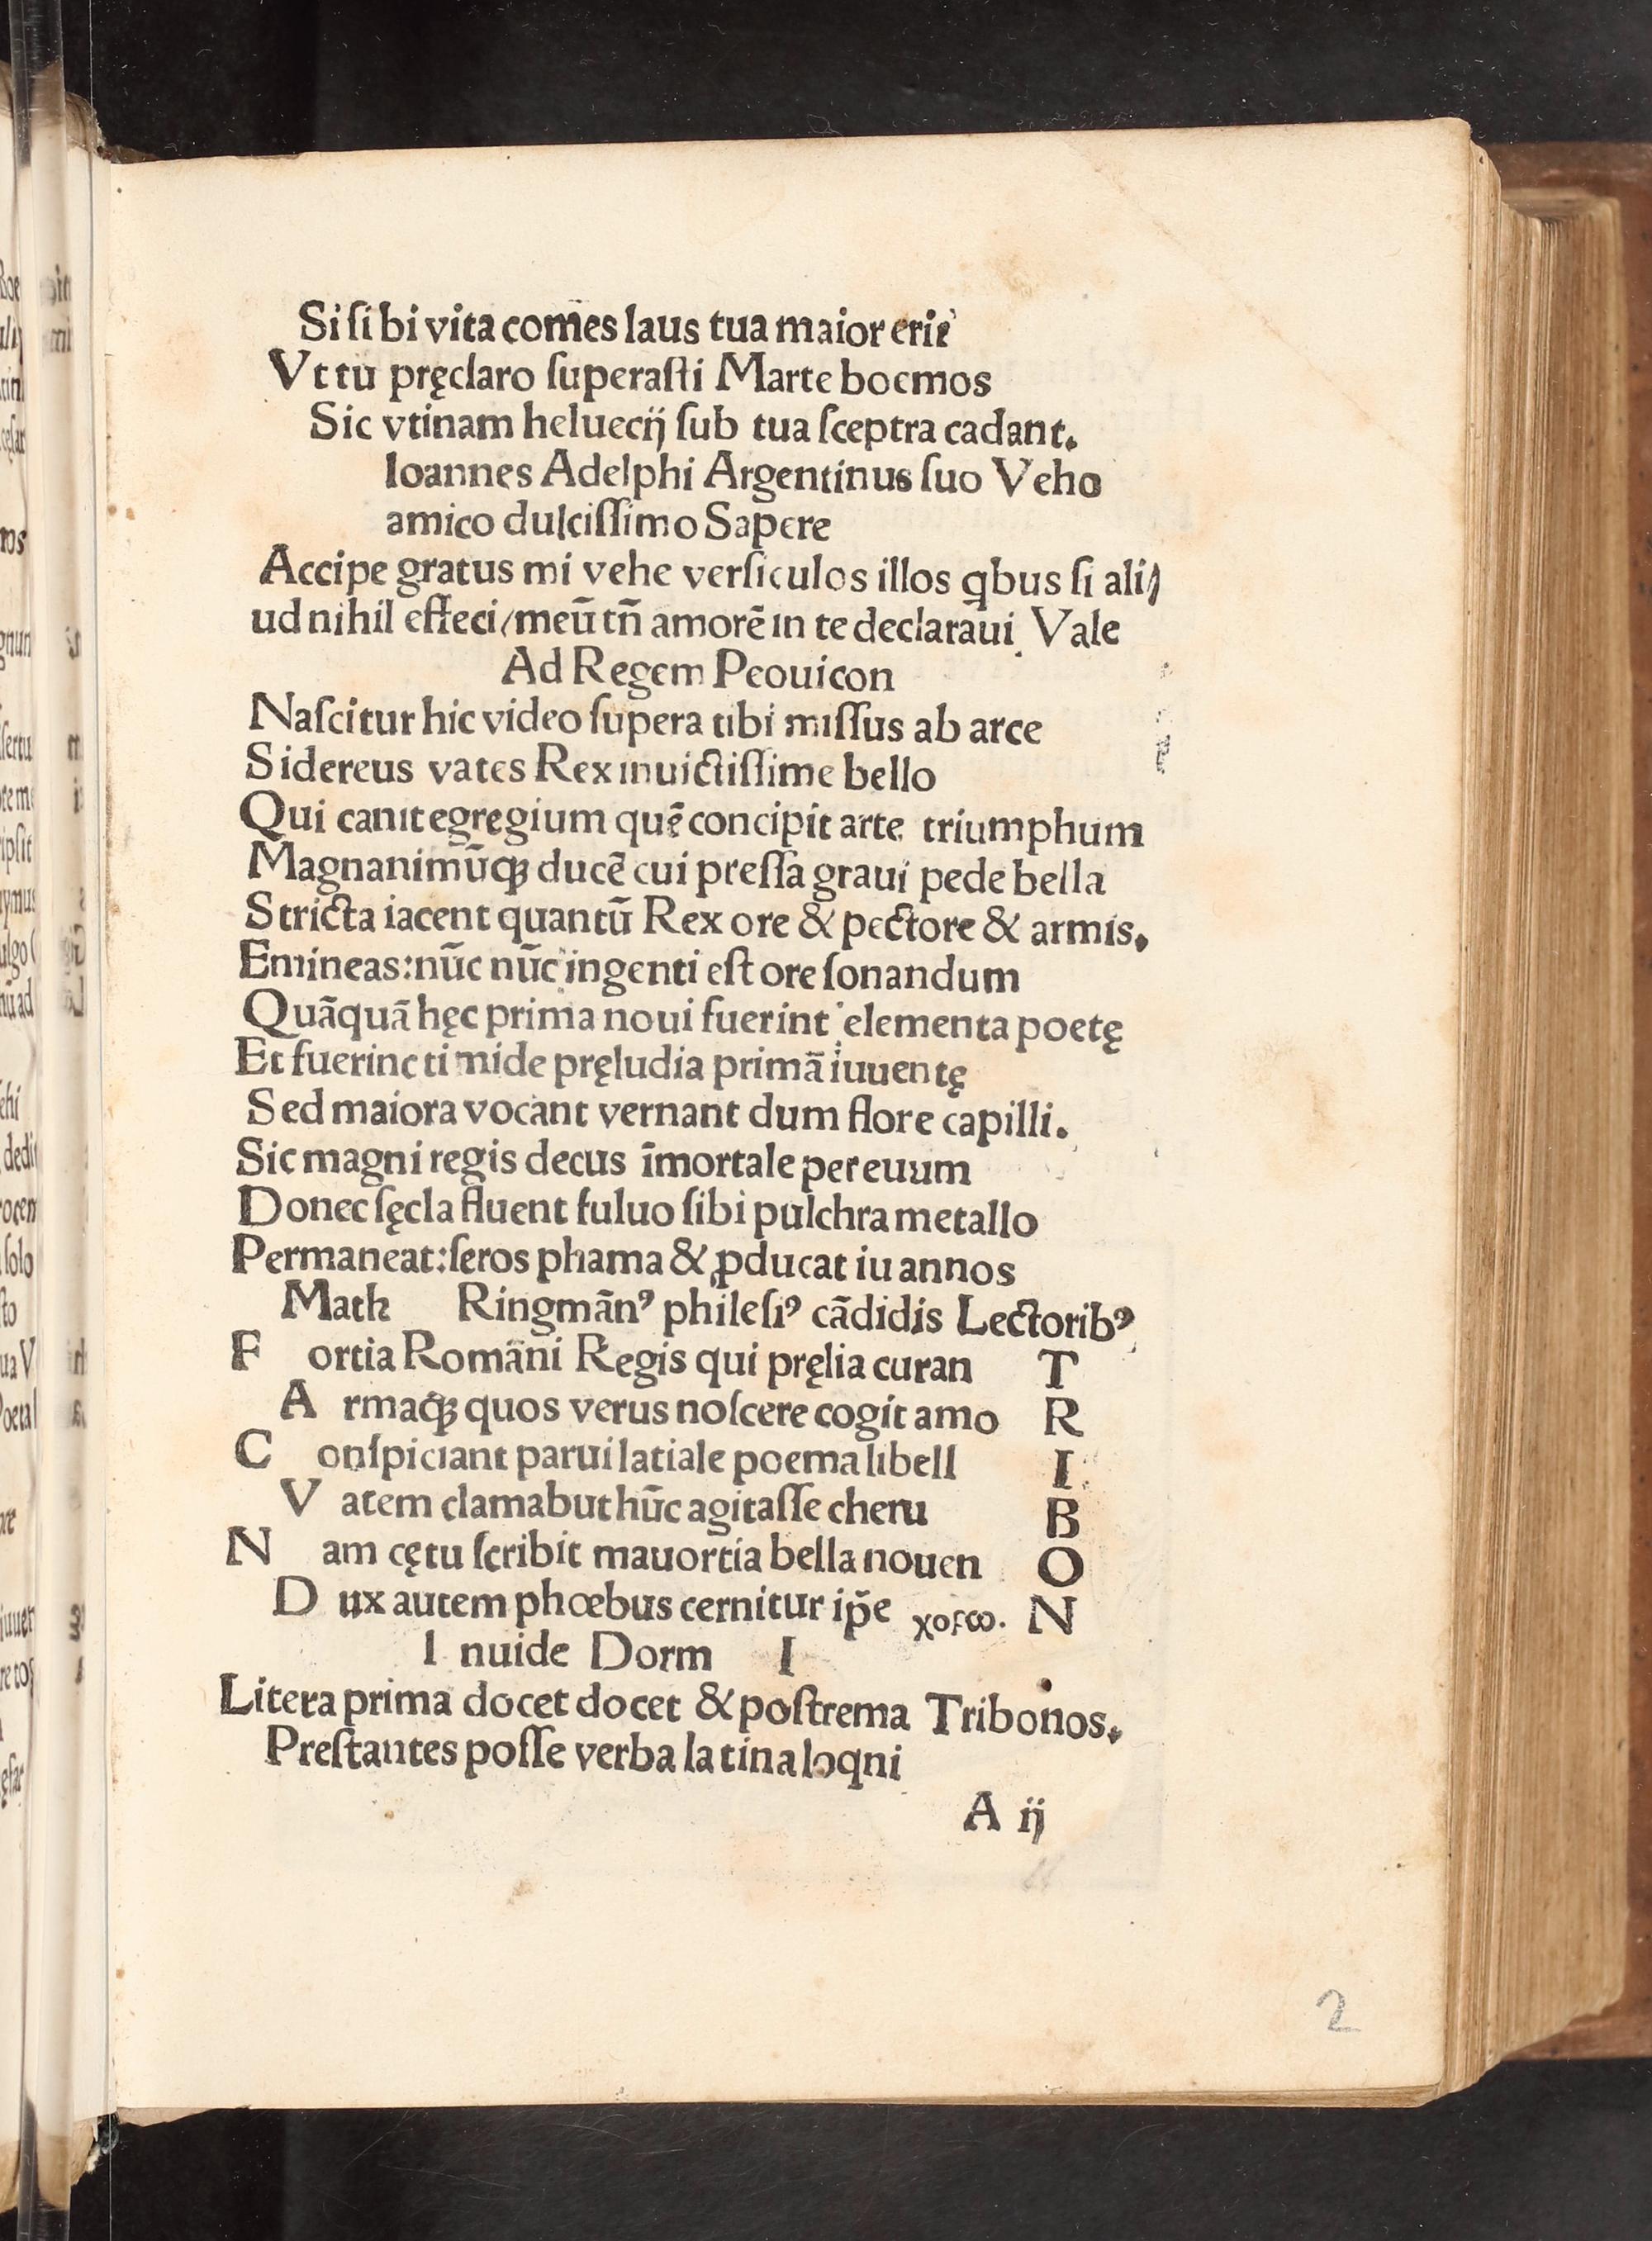 Si ſibi vita com̄es laus tua maior erit
Vt tu pręclaro ſuperaſti Marte boemos
Sic vtinam heluecij ſub tua ſceptra cadant.
Ioannes Adelphi Argentinus ſuo Veho
amico dulciſſimo Sapere
Accipe gratus mi vehe verſiculos illos qbus ſi ali/
ud nihil effeci/meū tñ amorē in te declaraui Vale
Ad Regem Peouicon
Naſcitur hic video ſupera tibi miſſus ab arce
Sidereus vates Rex inuictiſſime bello
Qui canit egregium quē concipit arte triumphum
Magnanimūqꝫ ducē cui preſſa graui pede bella
Stricta iacent quantū Rex ore & pectore & armis.
Emineas:nūc nūc ingenti eſt ore ſonandum
Quāquā hęc prima noui fuerint elementa poetę
Et fuerinc timide pręludia primā iuuentę
Sed maiora vocant vernant dum flore capilli.
Sic magni regis decus īmortale per euum
Donec ſęcla fluent fuluo ſibi pulchra metallo
Permaneat:ſeros phama & ꝓducat iu annos
Math Ringmānꝰ phileſiꝰ cādidis Lectoribꝰ
F ortia Romāni Regis qui pręlia curan T
A rmaqꝫ quos verus noſcere cogit amo R
C onſpiciant parui latiale poema libell I
V atem clamabut hūc agitaſſe cheru B
N am cętu ſcribit mauortia bella nouen O
D ux autem phœbus cernitur ip̄e χοϱω. N
I nuide Dorm I
Litera prima docet docet & poſtrema Tribonos.
Preſtantes poſſe verba latina loqni
A ij
2